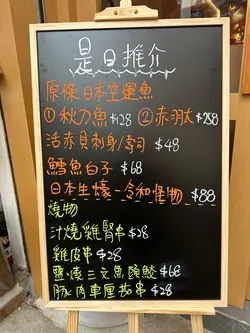 是日推介
原條日本空運魚
①秋刀魚$128 ②赤羽太$258
活赤貝刺身/壽司 $48
鱈魚白子 $68
日本生蠔-令和怪物 $88
燒物
汁燒雞腎串$28
雞皮串$28
鹽燒三文魚腩鮫$68
豚肉車厘茄串$28